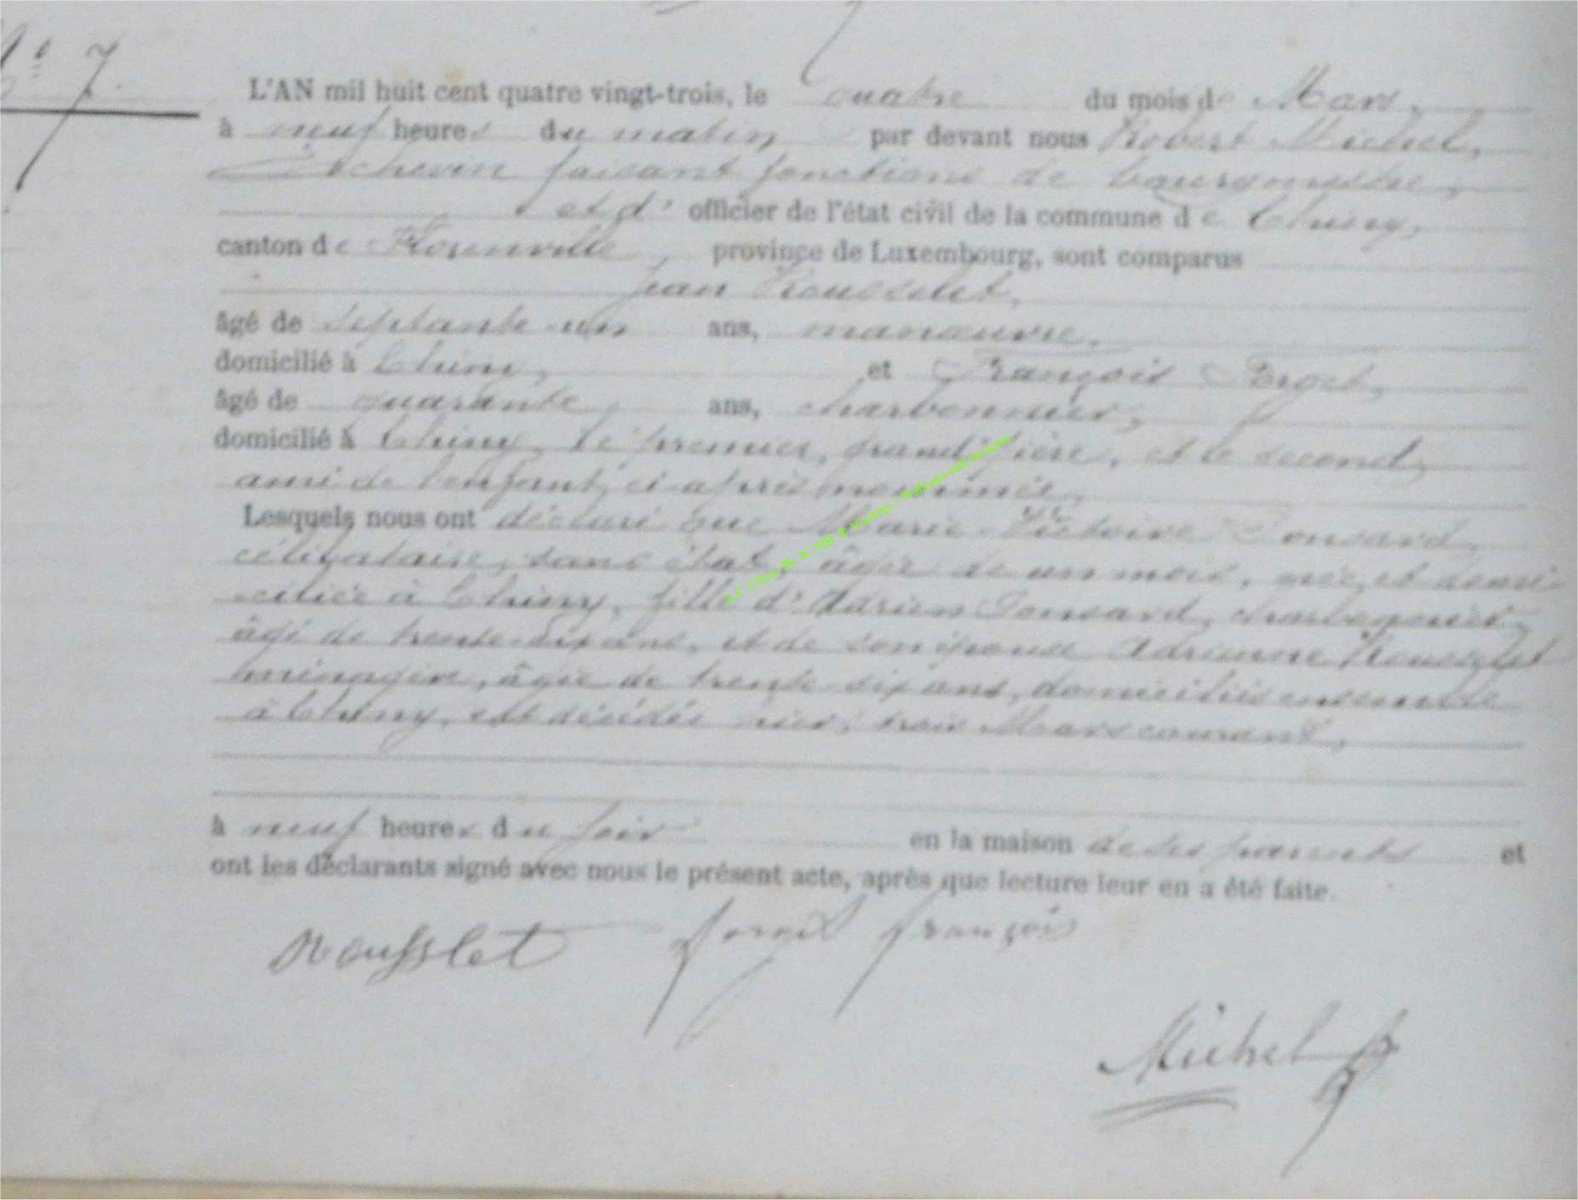 N° 7.
L'AN mil huit cent quatre vingt-trois, le quatre du mois de Mars,
à neuf heures du matin par devant nous Robert Michel,
Echevin faisant fonctions de bourgmestre,
et d' officier de l'état civil de la commune de Chiny,
canton de Florenville, province de Luxembourg, sont comparus
Jean Rousselet,
âgé de septante un ans, manœuvre,
domicilié à Chiny, et François Forget,
âgé de quarante ans, charbonnier,
domicilié à Chiny, le premier, grand'père, et le second,
ami de l'enfant, ci après nommée,
Lesquels nous ont déclaré que Marie Victoire Ponsard,
célibataire, sans état, âgée de un mois, née et domi-
ciliée à Chiny, fille d'Adrien Ponsard, charbonnier,
âgé de trente-six ans, et de son épouse Adrienne Rousselet
ménagère, âgée de trente-six ans, domiciliés ensemble
à Chiny, est décédée hier, trois Mars courant,
à neuf heures du soir en la maison de ses parents et
ont les déclarants signé avec nous le présent acte, après que lecture leur en a été faite.
Rousslet forget françois
Michel